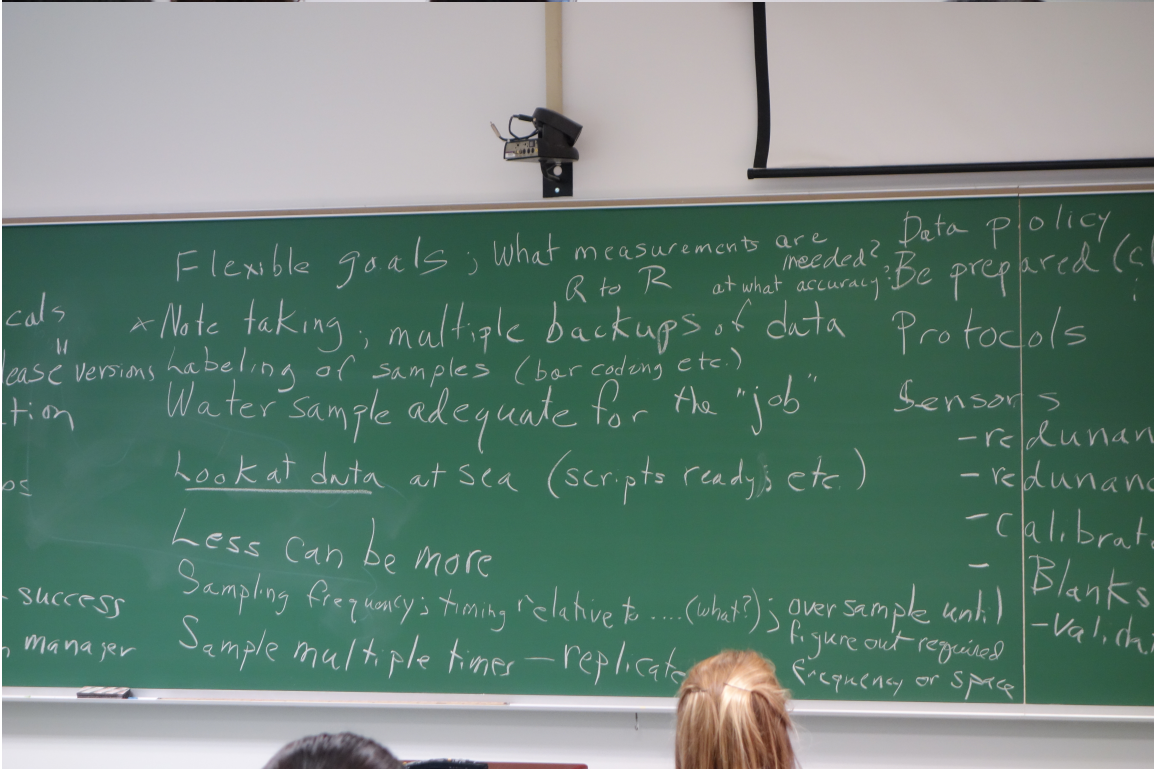 Flexible goals; What measurements are needed?
R to R at what accuracy?
* Note taking; multiple backups of data
Labeling of samples (bar coding etc.)
Water sample adequate for the "job"
Look at data at sea (scripts ready; etc.)
Less can be more
Sampling frequency; timing relative to ....(what?); over sample until
figure out required
frequency or space
Sample multiple times – replicate
cals
lease" versions
tion
os
- success
manager
Data policy
Be prepared (
Protocols
Sensors
- redunan
- redunanc
- Calibrat
- Blanks
- Valida